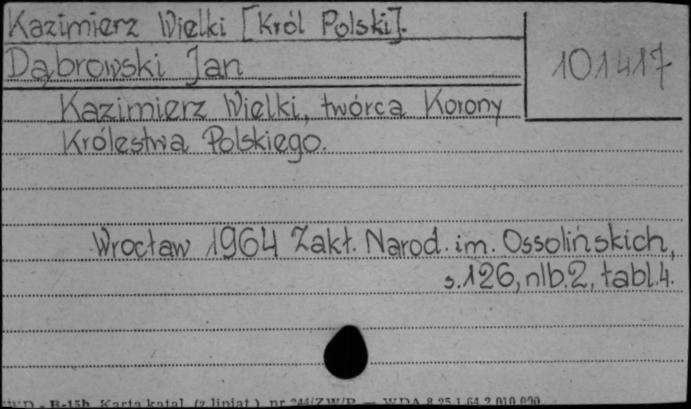 Kazimierz Wielki [Król Polski].
Dąbrowski Jan
101417
Kazimierz Wielki, twórca Korony
Królestwa Polskiego.
Wrocław 1964 Zakł. Narod. im. Ossolińskich,
s.126, nlb.2, tabl.4.
B-15b Karta katal. (z liniat.) nr 244/ZW/P — WDA